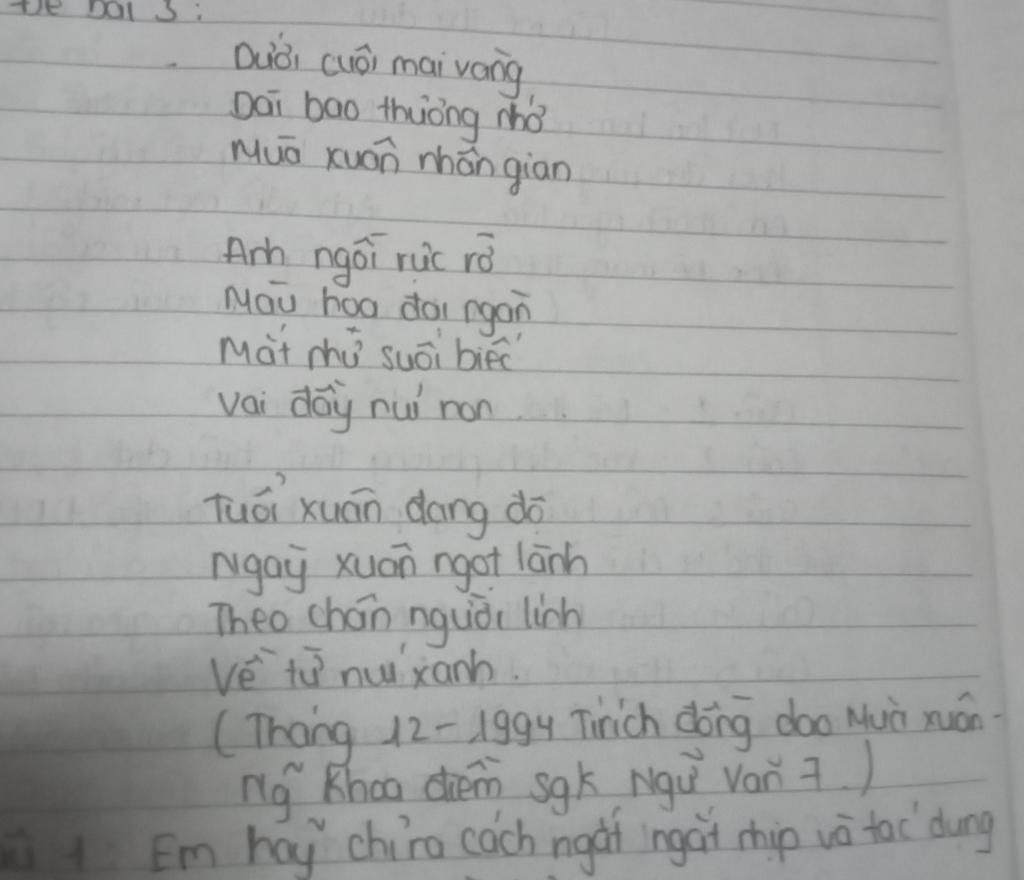 Đề bài 3:
Dưới cuội mai vàng
Dài bao thương nhớ
Mùa xuân nhân gian
Anh ngồi rực rỡ
Màu hoa đại ngàn
Mắt như suối biếc
Vai đầy núi non
Tuổi xuân đang độ
Ngày xuân ngọt lành
Theo chân người lính
Về từ núi xanh.
(Tháng 12 - 1994 Trích đồng dao Mùa xuân -
Ng~ Khoa điềm sgk Ngữ Văn 7.)
1: Em hãy chỉ ra cách ngắt ngắt nhịp và tác dụng